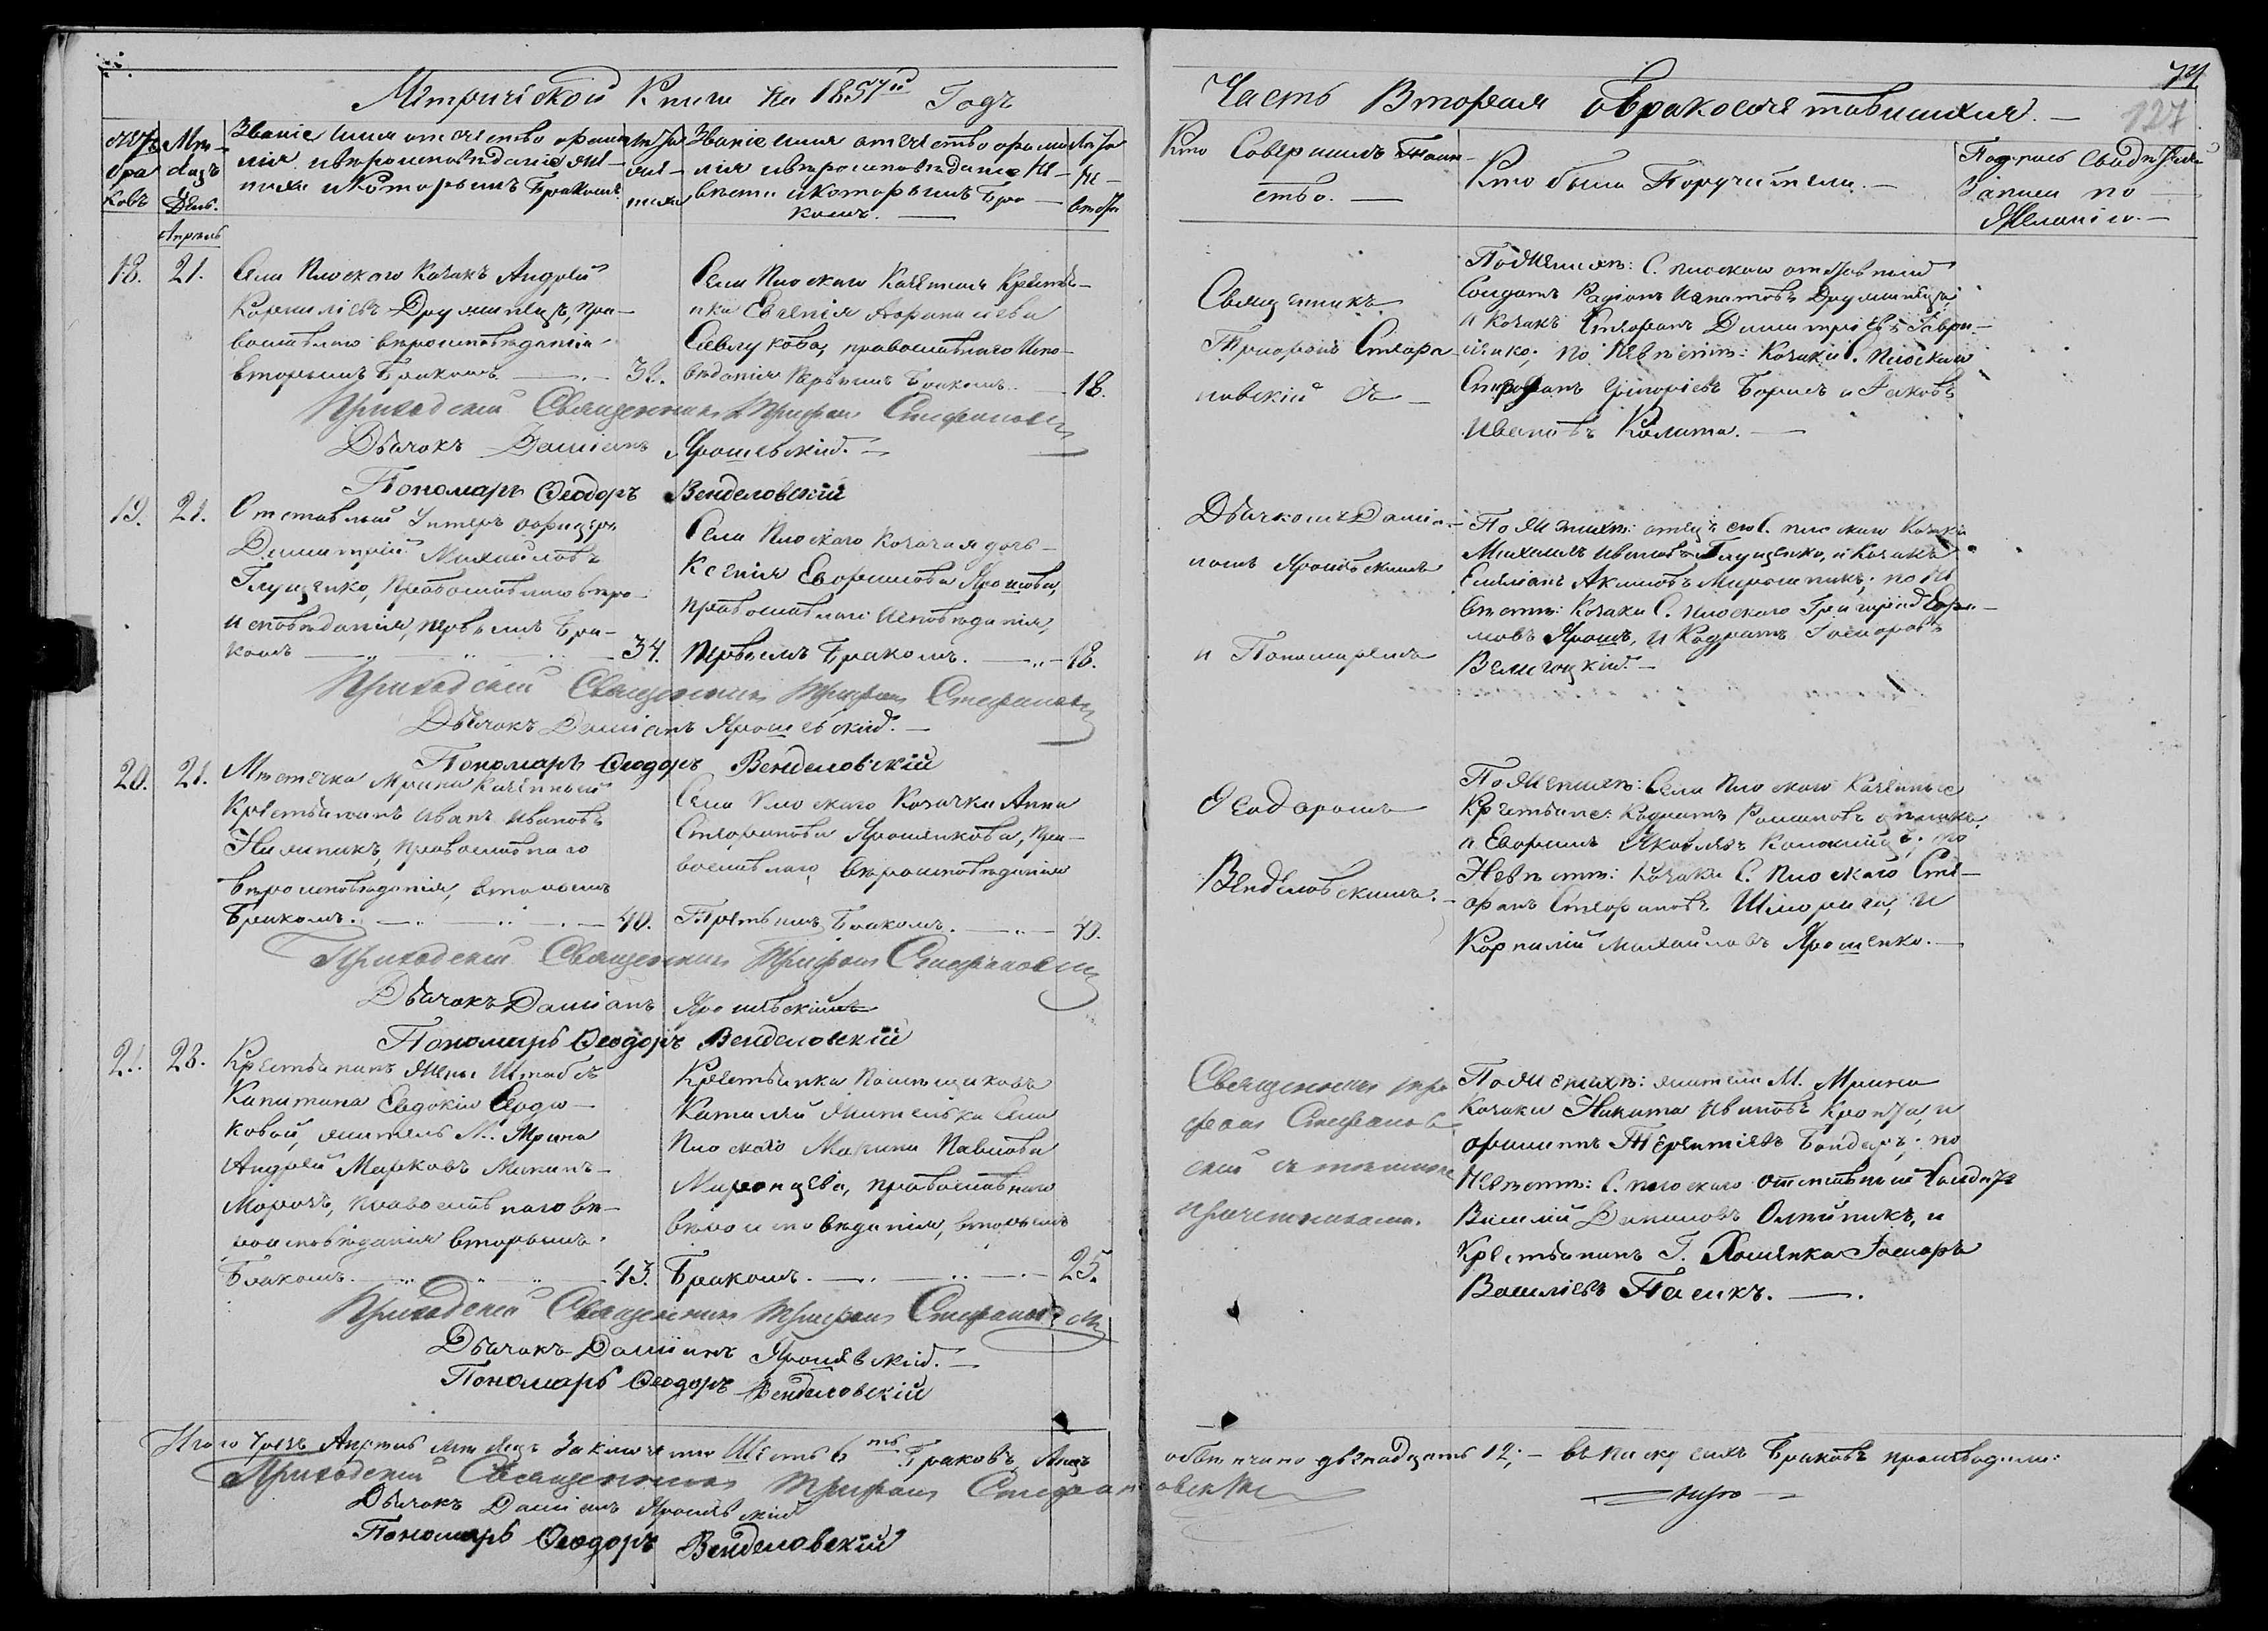 Метрической Книги на 1857й Годъ
Часть Вторая обракосочетавшихся.
74
127
Мѣсяцъ
День.
Званіе имя отечество фамилія ивѣроисповѣданіе Жениха икоторымъ Бракомъ
Лѣта Жениха
Званіе имя отечество фамилія ивѣроисповѣданіе Невѣсты икоторымъ Бракомъ.
Лѣта Невѣсты
Кто Совершилъ Таинство.
Кто были Поручители.
Подпись Свидѣтелей
Записи по
Желанію.
Апрель
18. 21.
Села Плоскаго Козакъ Андрей
Корниліевъ православнаго вѣроисповѣданія
вторымъ Бракомъ 32.
Села Плоскаго Казенная Крестьянка Евгенія
православнаго Исповѣданія Первымъ Бракомъ. 18.
Священникъ
Трифонъ Стефановскій съ
По Женихѣ: С. Плоскаго отставній
Солдатъ Родіонъ Игнатовъ
и Козакъ Стефанъ Димитріевъ Гавриленко; по Невѣстѣ: Козаки С. Плоскаго
Стефанъ Григоріевъ и Іаковъ
Ивановъ Калита.
Приходскій Священникъ Трифонъ Стефановскій
Дьячокъ Даміанъ Ярошевскій.
Пономарь Ѳеодоръ Венделовскій
19. 21.
Отставный Унтеръ офицеръ
Димитрій Михайловъ
Глущенко, Православнаго вѣроисповѣданія, первымъ Бракомъ 34.
Села Плоскаго Козачая дочь
Ксенія Ефимова Ярошова,
православнаго Исповѣданія,
Первымъ Бракомъ. 18.
Дьячкомъ Даміаномъ Ярошевскимъ
и Пономаремъ
По Женихѣ: отецъ его С. Плоскаго Козакъ
Михаилъ Ивановъ Глущенко, и Козакъ
Емеліанъ Акимовъ Мирошникъ; по Невѣстѣ: Козаки С. Плоскаго Григорій Ефимовъ Ярошъ, и Кодратъ
Велигоцкій.
Приходскій Священникъ Трифонъ Стефановскій
Дьячокъ Даміанъ Ярошевскій.
Пономарь Ѳеодоръ Венделовскій
20. 21.
Мѣстечка Мрина Казенный
Крестьянинъ Иванъ Ивановъ
православнаго
вѣроисповѣданія, вторымъ
Бракомъ. 40.
Села Плоскаго Козачка Анна
Стефанова Ярошенкова, православнаго вѣроисповѣданія
Третьимъ Бракомъ. 40.
Ѳеодоромъ
Венделовскимъ.
По Женихѣ: Села Плоскаго Казенные
Крестьяне: Кодратъ Романовъ
и Ефимъ Яковлевъ по
Невѣстѣ: Козаки С. Плоскаго Стефанъ Стефановъ и
Корнилій Михайловъ Ярошенко.
Приходскій Священникъ Трифонъ Стефановскій
Дьячокъ Даміанъ Ярошевскій
Пономарь Ѳеодоръ Венделовскій
21. 28.
Крестьянинъ Жены Штабсъ
Капитана Евдокіи
житель М. Мрина
Андрей Марковъ
Морозъ, православнаго вѣроисповѣданія вторымъ
Бракомъ. 43.
Крестьянка Помѣщиковъ
жителька Села
Плоскаго Марина Павлова
православнаго
вѣроисповѣданія, вторымъ
Бракомъ. 25.
Священникъ Трифонъ Стефановскій съ
причетниками.
По Женихѣ: жители М. Мрина
Козаки Никита Ивановъ и
Терентіевъ Бондарь; по
Невѣстѣ: С. Плоскаго отставный Солдатъ
Василій Даниловъ Олейникъ, и
Крестьянинъ
Василіевъ Пасикъ.
Приходскій Священникъ Трифонъ Стефановскій
Дьячокъ Даміанъ Ярошевскій.
Пономарь Ѳеодоръ Венделовскій
Итого чрезъ Апрѣль мѣсяцъ Заключено Шесть 6ть Браковъ, Лицъ
обвѣнчано двѣнадцать 12; въ сихъ Браковъ производили:
Приходскій Священникъ Трифонъ Стефановскій
Дьячокъ Даміанъ Ярошевскій
Пономарь Ѳеодоръ Венделовскій